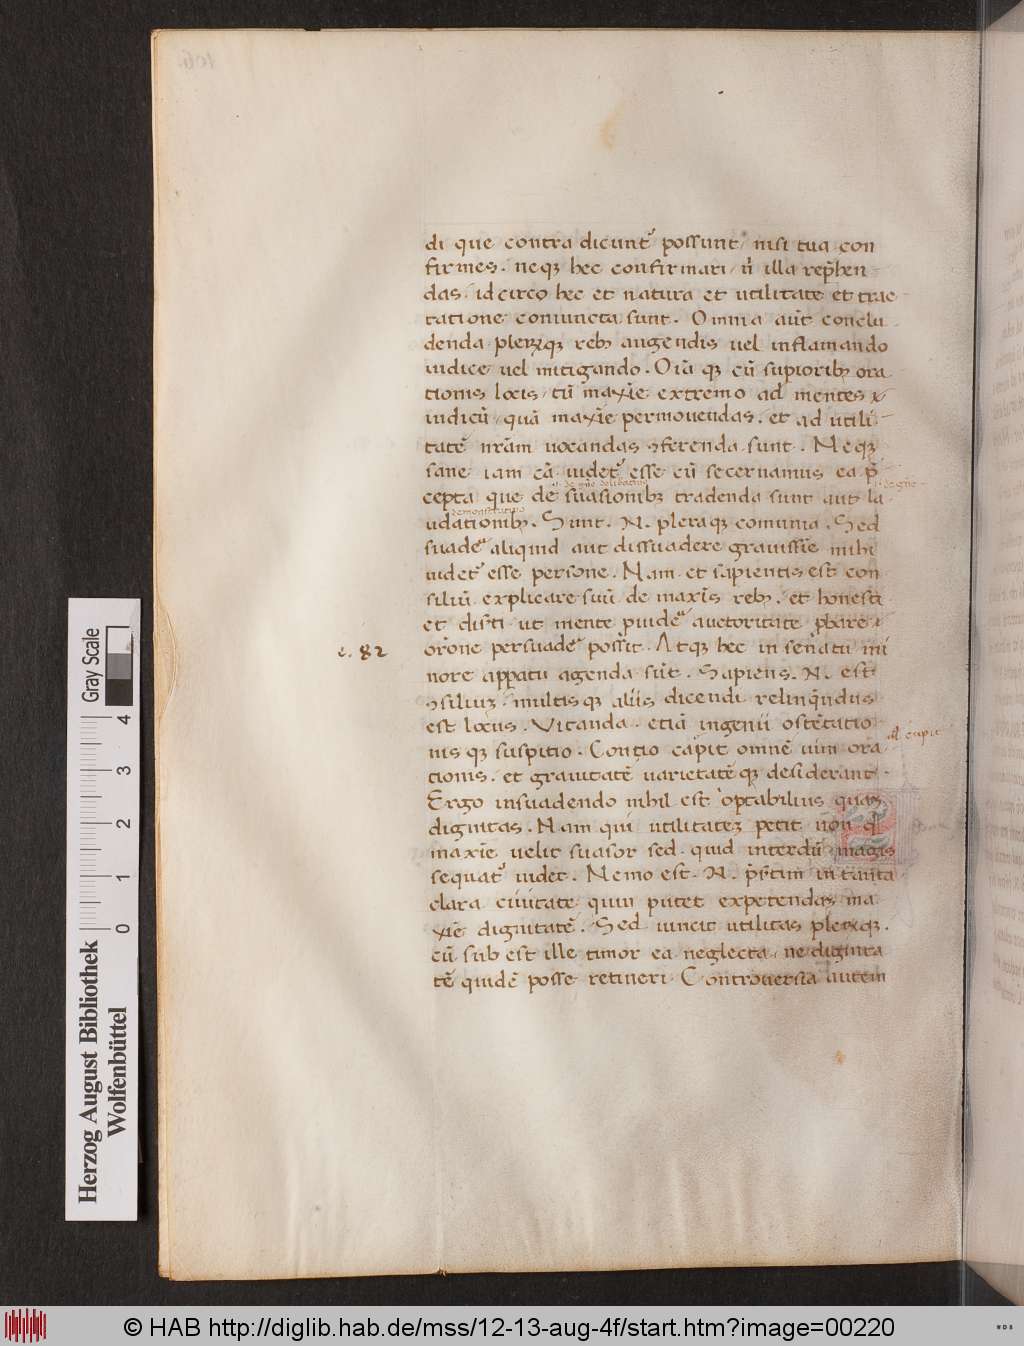 di que contra dicunt᷑ possunt nisi tua con
firmes. neqꝫ hec confirmari / ń illa rep̄hen
das. id circo hec et natura et utilitate et trac
tatione coniuncta sunt. Omnia aūt conclu
denda pleꝝqꝫ rebꝫ augendis uel inflamando
iudice uel mitigando. Oīa qꝫ cū supioribꝫ ora
tionis locis / tū maxīe extremo ad mentes
iudicū / quā maxīe permouendas. et ad utili
tatē nr̄am uocandas ꝯferenda sunt. Neqꝫ
sane iam cā uidet᷑ esse cū secernamus ea p̄
cepta que de suasionibꝫ tradenda sunt aut la
demonstratiuo
udationibꝫ. Sunt. N. pleraqꝫ comunia. Sed
suadeᷣ aliquid aut dissuadere grauissīe mihi
uidet᷑ esse persone. Nam et sapientis est con
siliū explicare suū de maxīs rebꝫ. et honesti
et disti ut mente puideᷣ auctoritate ꝓbare
c. 82
or̄one persuadeᷣ possit. Atqꝫ hec in senatu mi
nore appatu agenda sūt. Sapiens. N. est
ꝯsiliuꝫ. multisqꝫ aliis dicendi relinq̄ndus
est locus. Vitanda etiā ingenii ostētatio
nis qꝫ suspitio. Contio capit omnē uim ora
al capit
tionis. et grauitatē uarietatē qꝫ desiderant
Ergo insuadendo nihil est optabilius quas
dignitas. Nam qui utilitateꝫ petit non qᷣ
maxīe uelit suasor sed quid interdū magis
sequat᷑ uidet. Nemo est. N. p̄s̄tim in tanta
clara ciuitate quin putet expetendas ma
xīe dignitatē. Sed uincit utilitas pleꝝqꝫ.
cū sub est ille timor ea neglecta / ne dignita
tē quidē posse retineri. Controuersia autem
Gray Scale
4
3
2
1
0
Herzog August Bibliothek
Wolfenbüttel
© HAB http://diglib.hab.de/mss/12-13-aug-4f/start.htm?image=00220